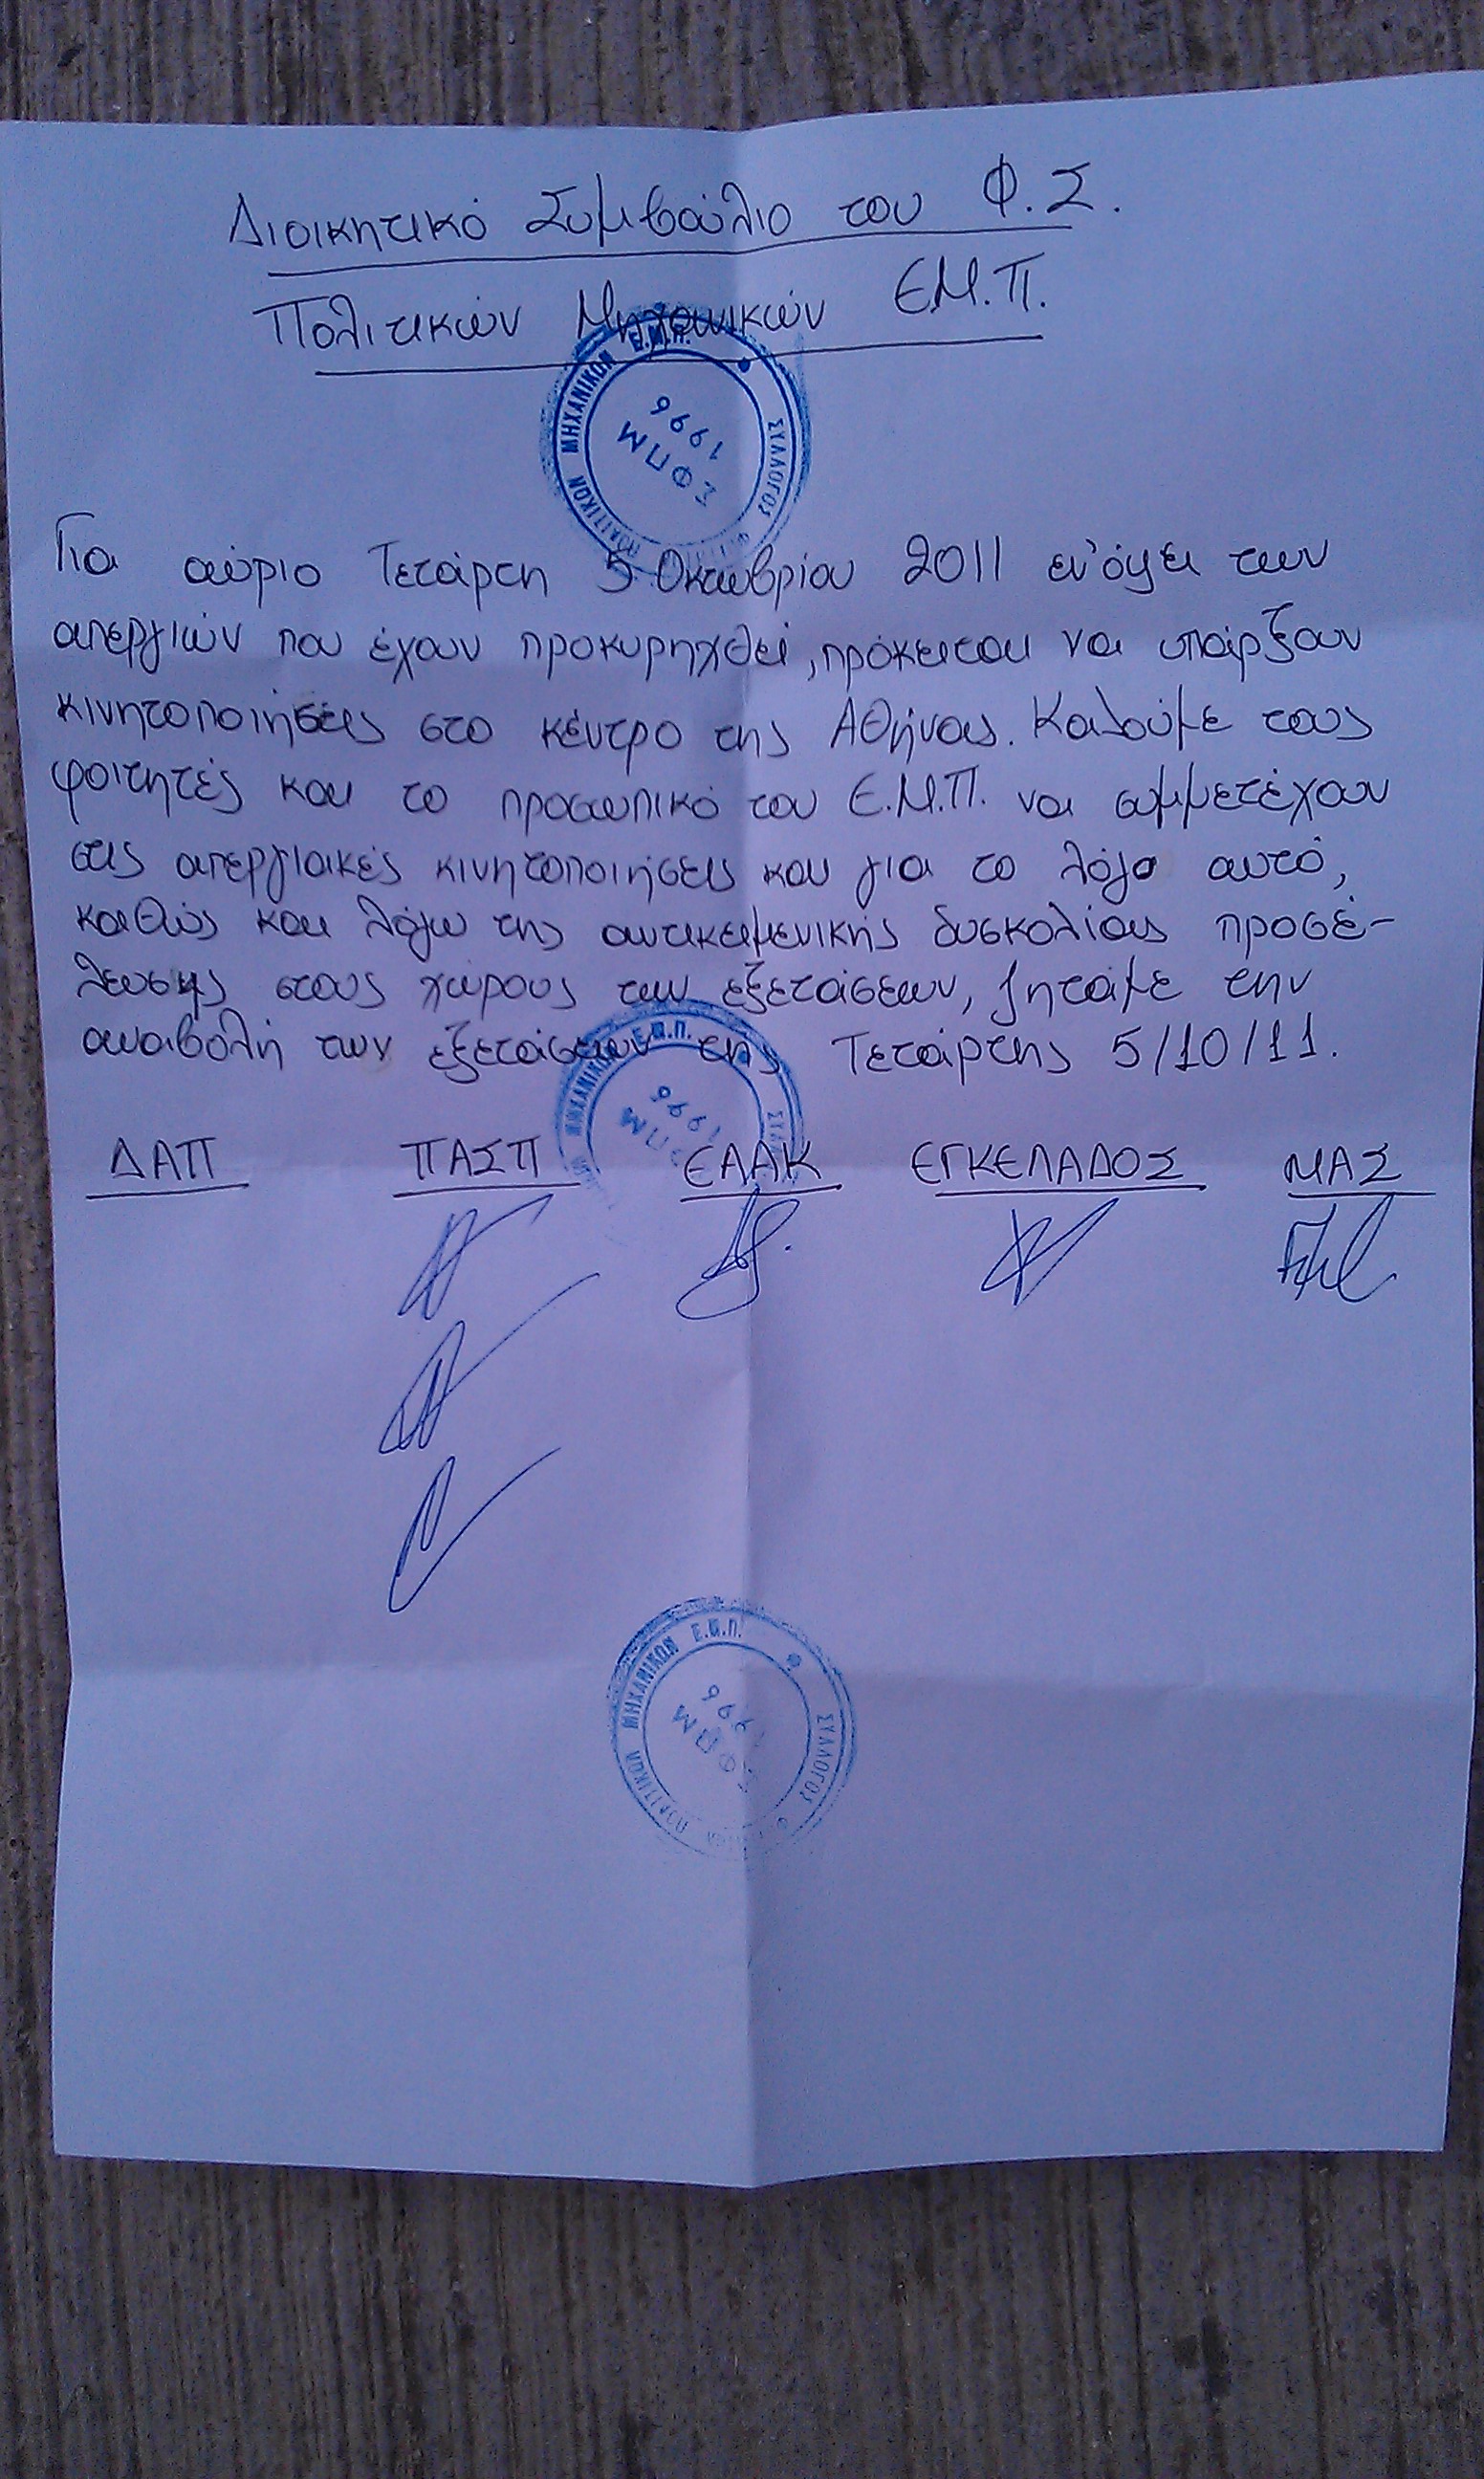 Διοικητικό Συμβούλιο του Φ.Σ.
Πολιτικών Μηχανικών Ε.Μ.Π.
ΣΥΛΛΟΓΟΣ ΠΟΛΙΤΙΚΩΝ ΜΗΧΑΝΙΚΩΝ Ε.Μ.Π.
ΣΦΠΜ
1996
Για αύριο Τετάρτη 5 Οκτωβρίου 2011 εν'όψει των
απεργιών που έχουν προκυρηχθεί, πρόκειται να υπάρξουν
κινητοποιήσεις στο κέντρο της Αθήνας. Καλούμε τους
φοιτητές και το προσωπικό του Ε.Μ.Π. να συμμετέχουν
στις απεργιακές κινητοποιήσεις και για το λόγο αυτό,
καθώς και λόγω της αντικειμενικής δυσκολίας προσέ-
λευσης στους χώρους των εξετάσεων, ζητάμε την
αναβολή των εξετάσεων της Τετάρτης 5/10/11.
Ε.Μ.Π.
ΜΗΧΑΝΙΚΩΝ
1996
ΔΑΠ ΠΑΣΠ ΕΑΑΚ ΕΓΚΕΛΑΔΟΣ ΜΑΣ
ΣΥΛΛΟΓΟΣ ΠΟΛΙΤΙΚΩΝ ΜΗΧΑΝΙΚΩΝ Ε.Μ.Π.
ΣΦΠΜ
1996